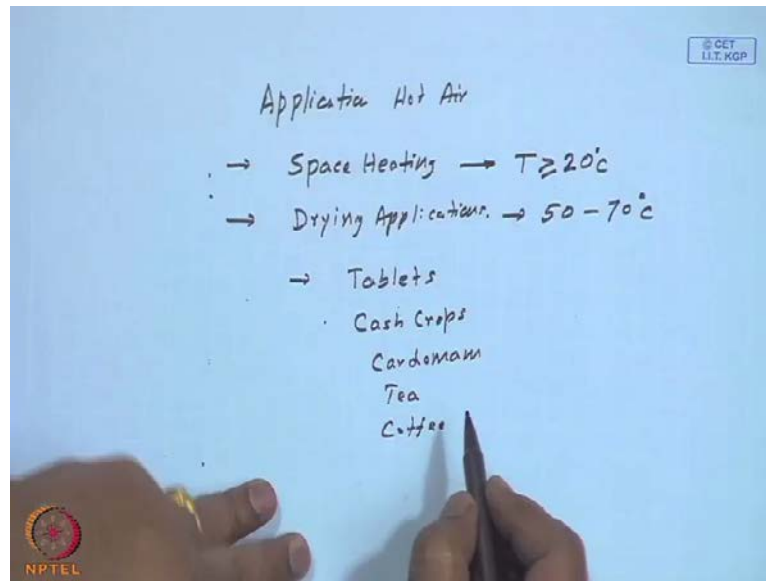 © CET
I.I.T. KGP
Application Hot Air
→ Space Heating → T ≥ 20°C
→ Drying Applications. → 50 - 70°C
→ Tablets
Cash Crops
Cardomam
Tea
Coffee
NPTEL